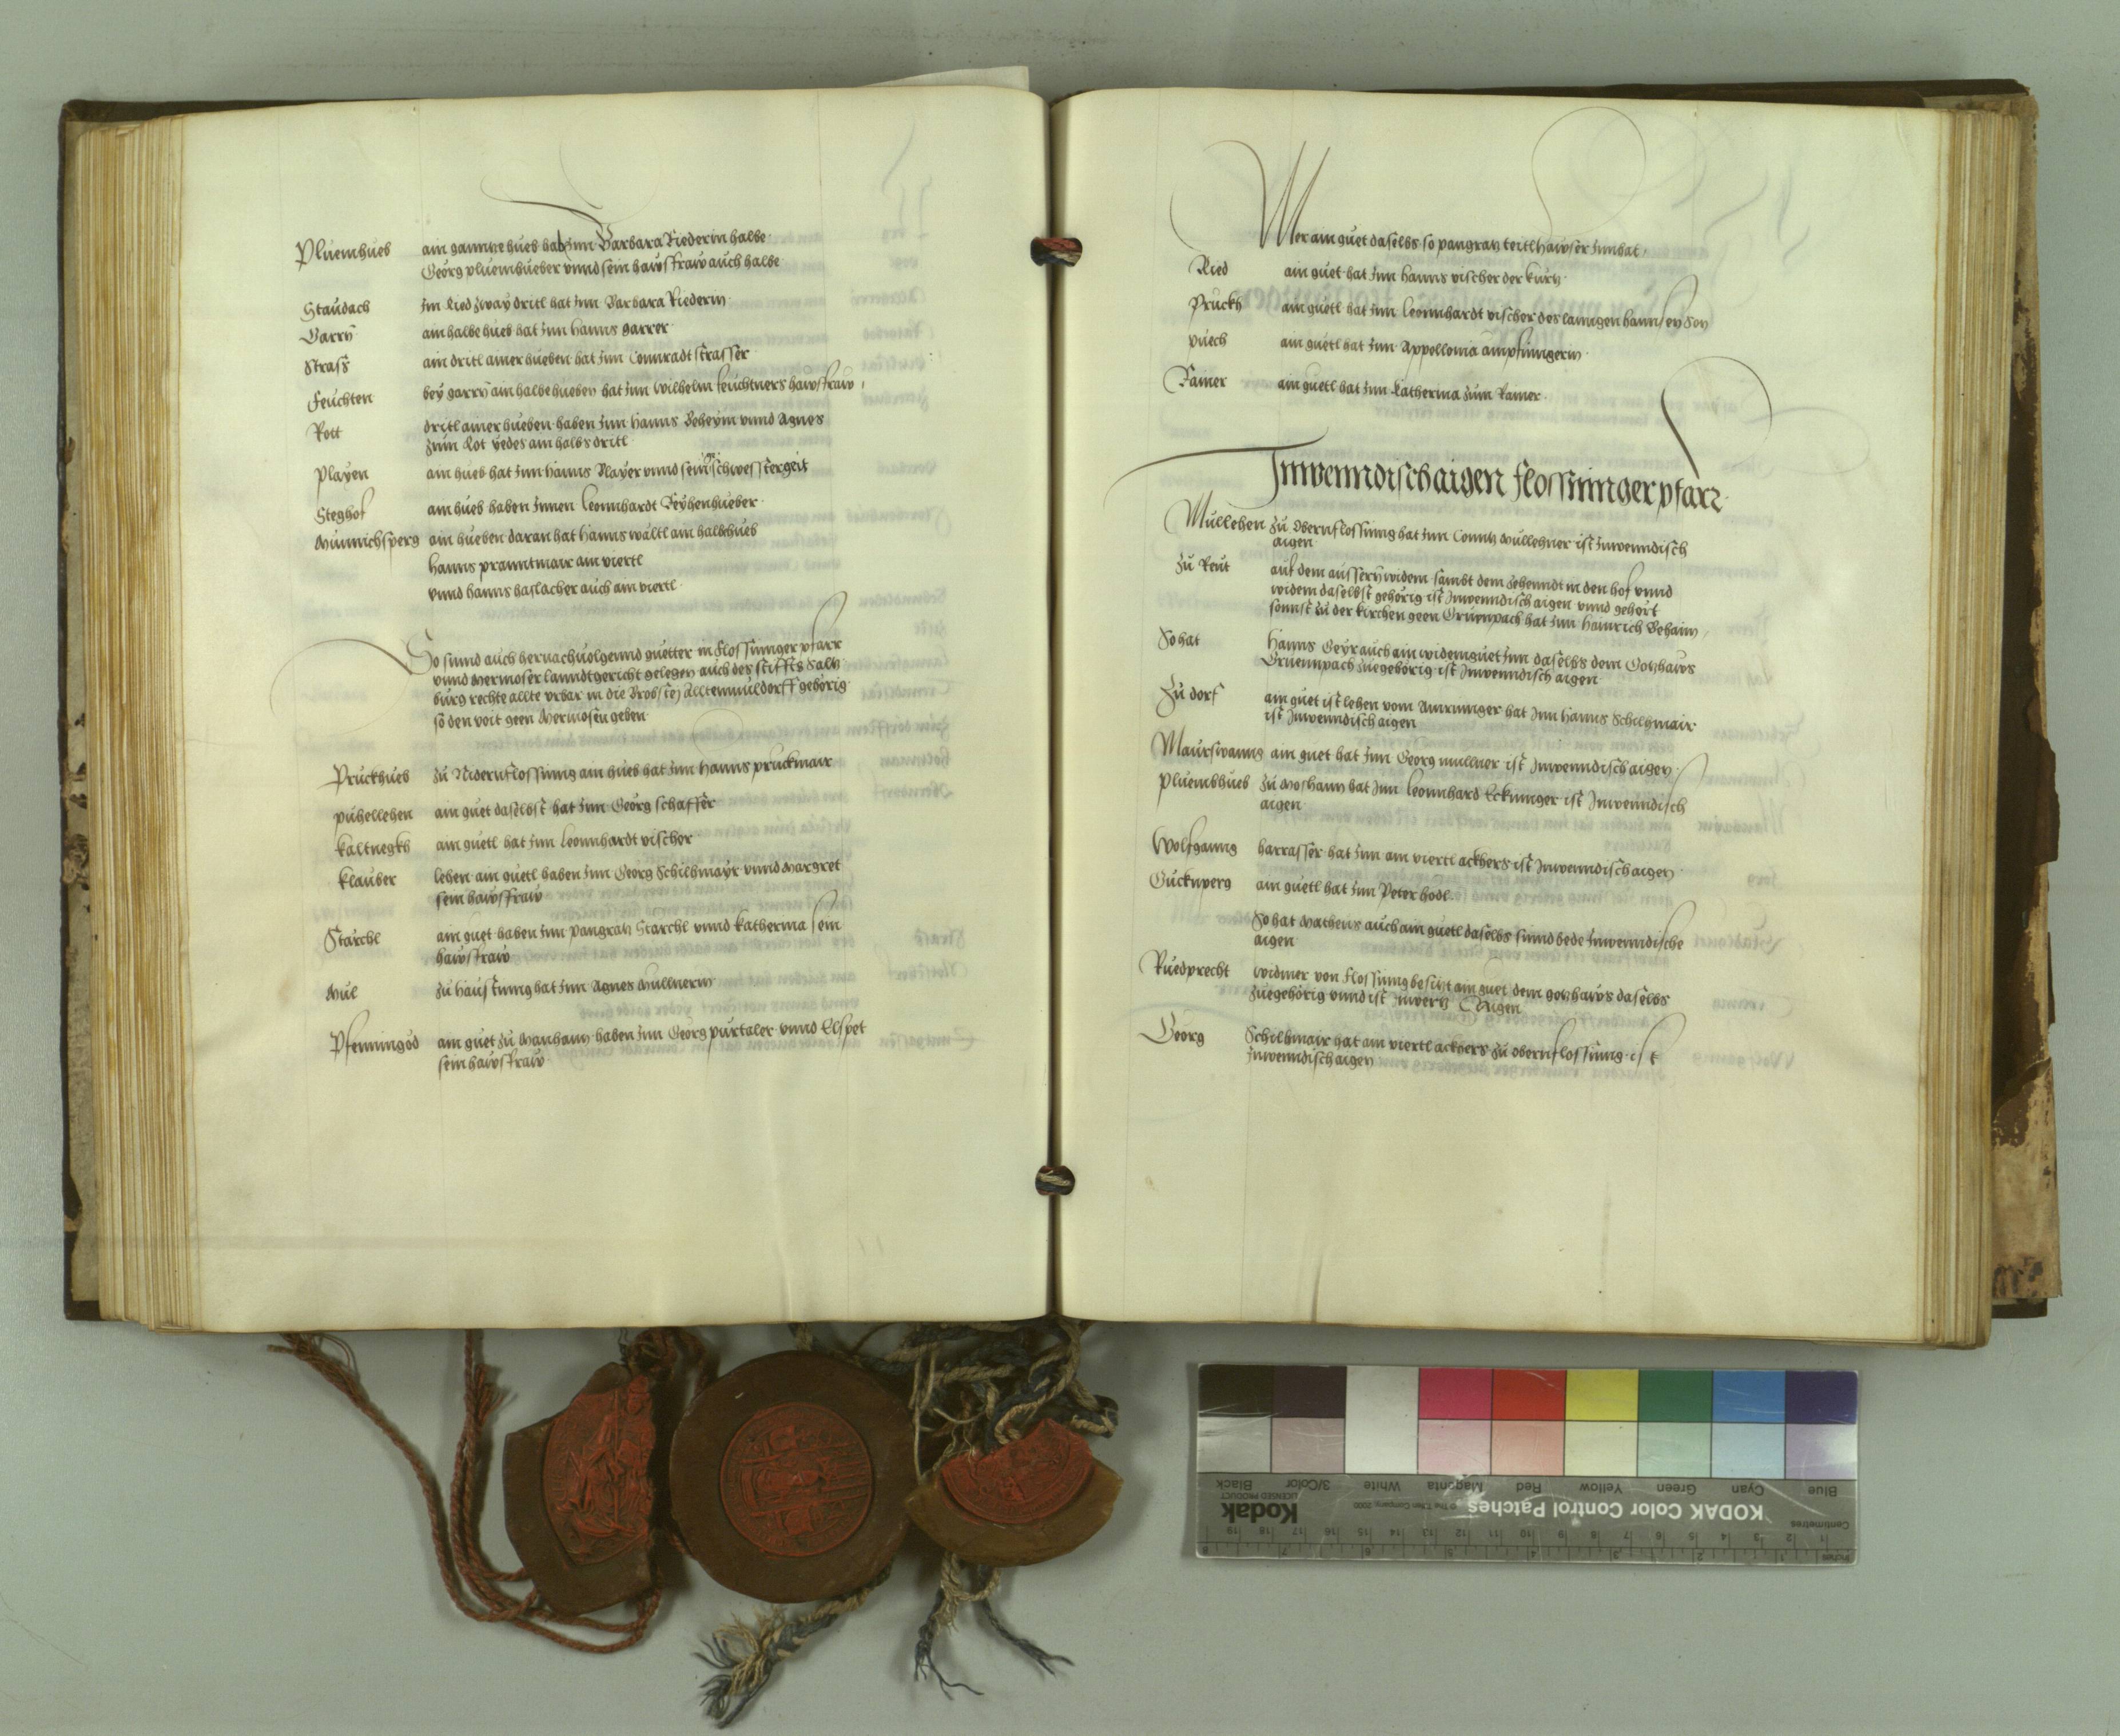 Pluemhueb ain ganntze hueb hat Inn Barbara Riederin halbe
Georg pluemhueber vnnd sein hawsfraw auch halbe
Staudach Im Ried zway dritl hat Inn Barbara Riederin
Garrn ain halbe hueb hat Inn Hanns garrer
Strass ain dritl ainer hueben hat Inn Connradt strasser
Feuchten bey garrn ain halbe hueben hat Inn Wilhelm feuchtners hawsfraw
Rott dritl ainer hueben haben Inn Hanns Beheym vnnd Agnes
zum Rot yedes ain halbs dritl
Playen ain hueb hat Inn Hanns Player vnnd sein schwester geit
Steghof ain hueb haben Innen Leonnhardt Reyhenhueber
Munnichsperg ain hueben daran hat Hanns waltl ain halbhueb
Hanns pranntmair ain viertl
vnnd hanns haslacher auch ain viertl
So sinnd auch hernachuolgennd guetter in Flossinnger pfarr
vnnd Mermoser lanndtgericht gelegen auch des stiffts Saltz
burg rechte allte vrbar in die Brobstey Alltenmuldorff gehörig
so den voit geen Mermosen geben
Pruckhueb zu Nidernflossinng ain hueb hat Inn Hanns pruckmair
puhellehen ain guet daselbst hat Inn Georg schaffer
Kaltnegkh ain guetl hat Inn Leonnhardt vischer
Klauber lehen ain guetl haben Inn Georg Schilhmayr vnnd Margret
sein hawsfraw
Starchl ain guet haben Inn pangratz Starchl vnnd Katherina sein
hawsfraw
Mul zu Haustinng hat Inn Agnes Mullnerin
Pfenningod ain guet zu Manhann haben Inn Georg purtaler vnnd Elspet
sein hawsfraw
Mer ain guet daselbs so pangratz teitlhawser Innhat
Ried ain guet hat Inn Hanns vischer der kurtz
Pruckh ain guetl hat Inn Leonnhardt vischer des lanngen hannsen Son
puech ain guetl hat Inn Appollonia ampfinngerin
Ramer ain guetl hat Inn Katherina zum Ramer
Inwenndisch aigen Flossinnger pfarr
Mullehen zu Obernflossinng hat Inn Conntz Mullehner ist Inwenndisch
aigen
Zu Reut auf dem aussern widem sambt dem zehenndt in den hof vnnd
widem daselbst gehörig ist Inwenndisch aigen vnnd gehört
sonnst zu der kirchen geen Gruenpach hat Inn Hainrich Behaim
So hat Hanns Geyr auch ain widemguet Inn daselbs dem Gotzhaws
Gruennpach zuegehörig ist Inwenndisch aigen
Zu dorf ain guet ist lehen vom Amrannger hat Inn Hanns Schilhmair
ist Inwenndisch aigen
Maurswanng ain guet hat Inn Georg mullner ist Inwenndisch aigen
Pluembhueb zu Moshann hat Inn Leonnhard Eckinnger ist Inwenndisch
aigen
Wolfganng harrasser hat Inn ain viertl ackhers ist Inwenndisch aigen
Gucknperg ain guetl hat Inn Peter hodl
So hat Matheus auch ain guetl daselbs sinnd bede Inwenndische
aigen
Ruedprecht widmer von Flossinng besitzt ain guet dem gotzhaws daselbs
zuegehörig vnnd ist Inwertz Aigen
Georg Schilhmair hat ain viertl ackhers zu obernflossinng ist
Inwenndisch aigen
Blue Cyan Green Yellow Red Magenta White 3/Color Black
KODAK Color Control Patches
Kodak
LICENSED PRODUCT
Centimetres
Inches